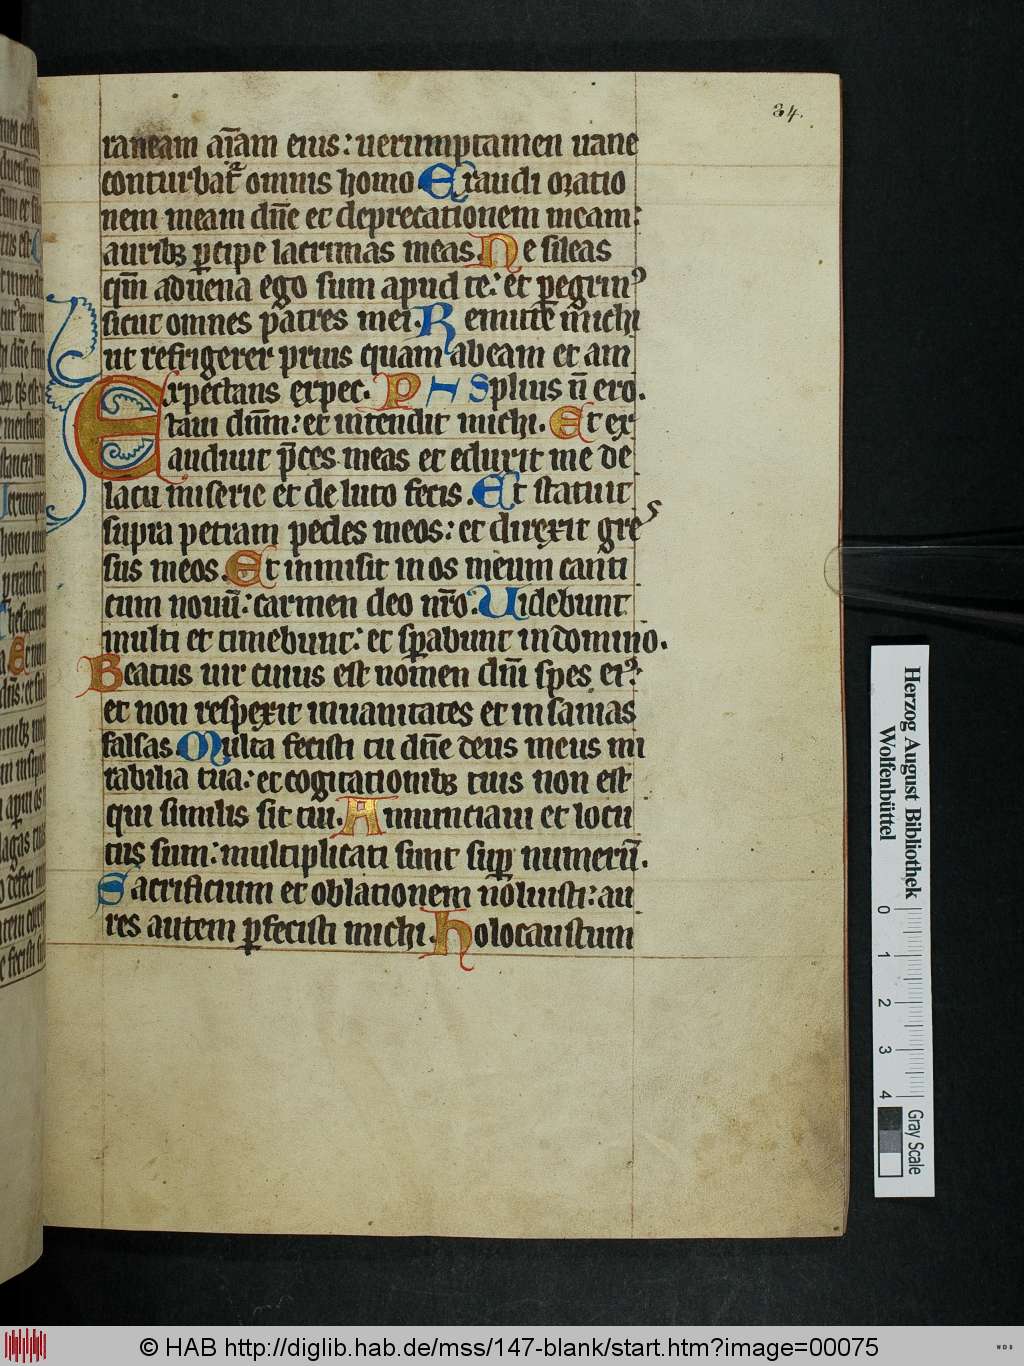 34.
raneam aīam eius: uerumptamen uane
conturbat᷑ omnis homo Exaudi oratio
nem meam dn̄e et deprecationem meam:
auribꝫ ꝑcipe lacrimas meas. Ne sileas
qm̄ aduena ego sum apud te: et ꝑegrinꝰ
sicut omnes patres mei. Remitte michi
ut refrigerer prius quam abeam et am
Expectans expec. P H Splius n̄ ero.
taui dn̄m: et intendit michi. Et ex
audiuit p̄ces meas et eduxit me de
lacu miserie et de luto fecis. Et statuit
supra petram pedes meos: et direxit gres
sus meos. Et inmisit in os meum canti
cum nouū: carmen deo nr̄o. Uidebunt
multi et timebunt: et sꝑabunt in domino.
Beatus uir cuius est nomen dn̄i spes eiꝰ:
et non respexit inuanitates et insanias
falsas. Multa fecisti tu dn̄e deus meus mi
rabilia tua: et cogitationibꝫ tuis non est
qui similis sit tui. Annunciaui et locu
tus sum: multiplicati sunt suꝑ numerū.
Sacrificium et oblationem noluisti: au
res autem ꝑfecisti michi. Holocaustum
Herzog August Bibliothek
Wolfenbüttel
0 1 2 3 4
Gray Scale
© HAB http://diglib.hab.de/mss/147-blank/start.htm?image=00075